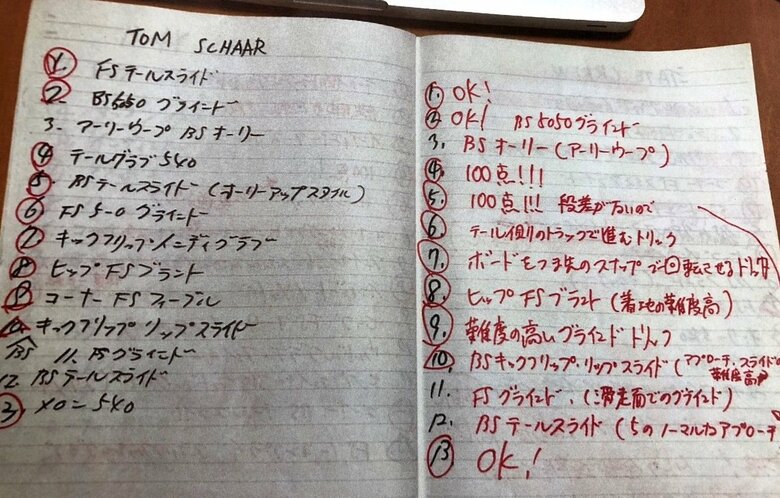 TOM SCHAAR
1. FSテールスライド
2. BS5050 グラインド
3. アーリーウープ BSオーリー
4 テールグラブ 540
5. BSテールスライド (オーリーアップスタイル)
6 FS 5-0 グラインド
7 キックフリップインディグラブ
8 ヒップFSブラント
9 コーナーFSフィーブル
10. キックフリップ リップスライド
BS
11. FSグラインド
12. BSテールスライド
13. 540
1. OK!
2 OK! BS5050グラインド
3. BSオーリー(アーリーウープ)
4. 100点!!!
5. 100点!!! 段差が
6. テール側のトラックで進むトリック
7. ボードをつま先のスナップで回転させるトリック
8. ヒップFSブラント(着地の難度高)
9. 難度の高いグラインドトリック
10. BSキックフリップ・リップスライド(アプローチ、スライドの
難度高
11. FSグラインド.(滑走面でのグラインド)
12. BSテールスライド (5のノーマルなアプローチ
13 OK!